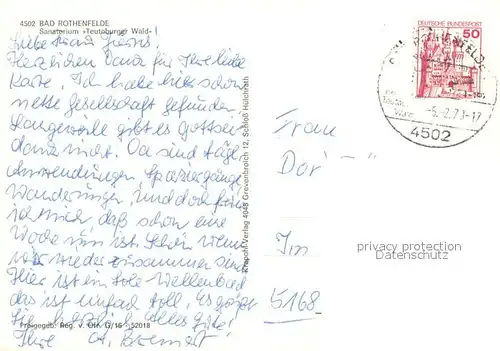 4502 BAD ROTHENFELDE
Sanatorium »Teutoburger Wald«
Liebe Frau
Herzlichen Dank für Ihre liebe
Karte. Ich habe hier schon
nette Gesellschaft gefunden
Langeweile gibt es Gottsei
dank nicht. Da sind tägl.
Anwendungen, Spaziergänge,
Wanderungen, und doch freue
ich mich daß schon eine
Woche um ist. Schön wenn
wir wieder zusammen sind.
Hier ist ein tolles Wellenbad
das ist einfach toll. Es grüßt
Sie herzlich alles gute!
Ihre A.
Freigegeb. Reg. v. Df. G/16 52018
Krapohl-Verlag 4048 Grevenbroich 12, Schloß Hülchrath
DEUTSCHE BUNDESPOST
50
ROTHENFELDE
-17
4502
Frau
Dor
Im
5168
privacy protection
Datenschutz